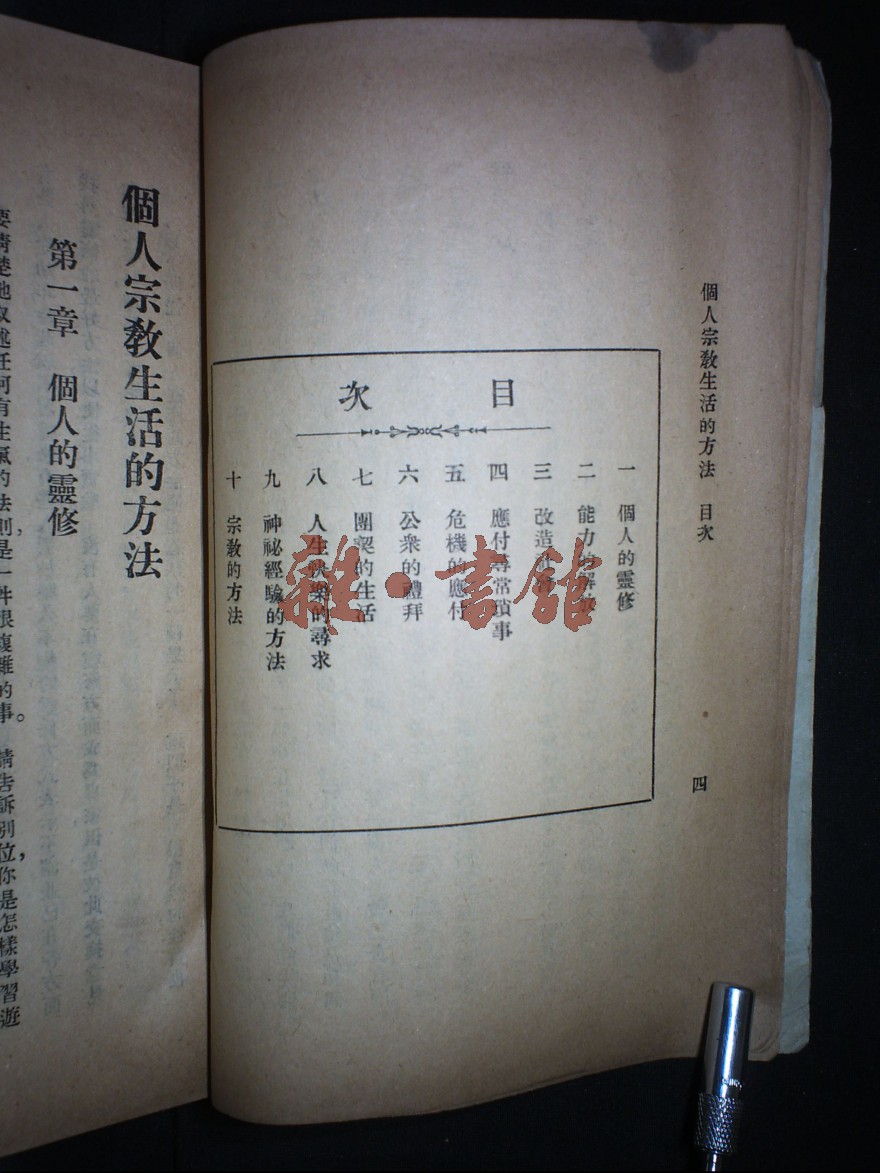 個人宗教生活的方法 目次
四
目次
一 個人的靈修
二 能力的解放
三 改造社會
四 應付尋常瑣事
五 危機的應付
六 公衆的禮拜
七 團契的生活
八 人生快樂的尋求
九 神祕經驗的方法
十 宗教的方法
雜·書舘
個人宗教生活的方法
第一章 個人的靈修
要清楚地叙述任何有生氣的法則,是一件很複雜的事。請告訴別位,你是怎樣學習遊